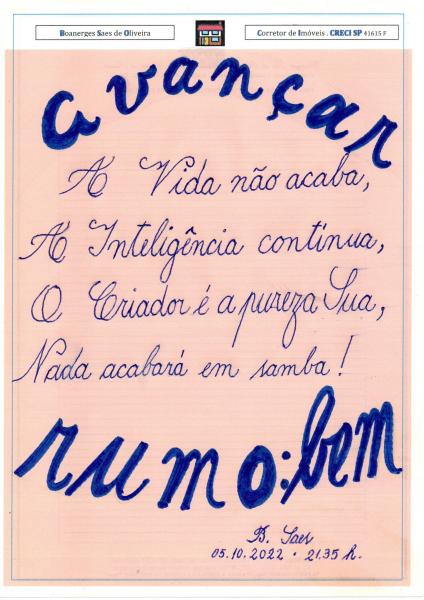 Boanerges Saes de Oliveira
Corretor de Imóveis . CRECI SP 41615 F
avançar
A Vida não acaba,
A Inteligência continua,
O Criador é a pureza Sua,
Nada acabará em samba!
rumo:bem
B. Saes
05.10.2022 · 21.35 h.